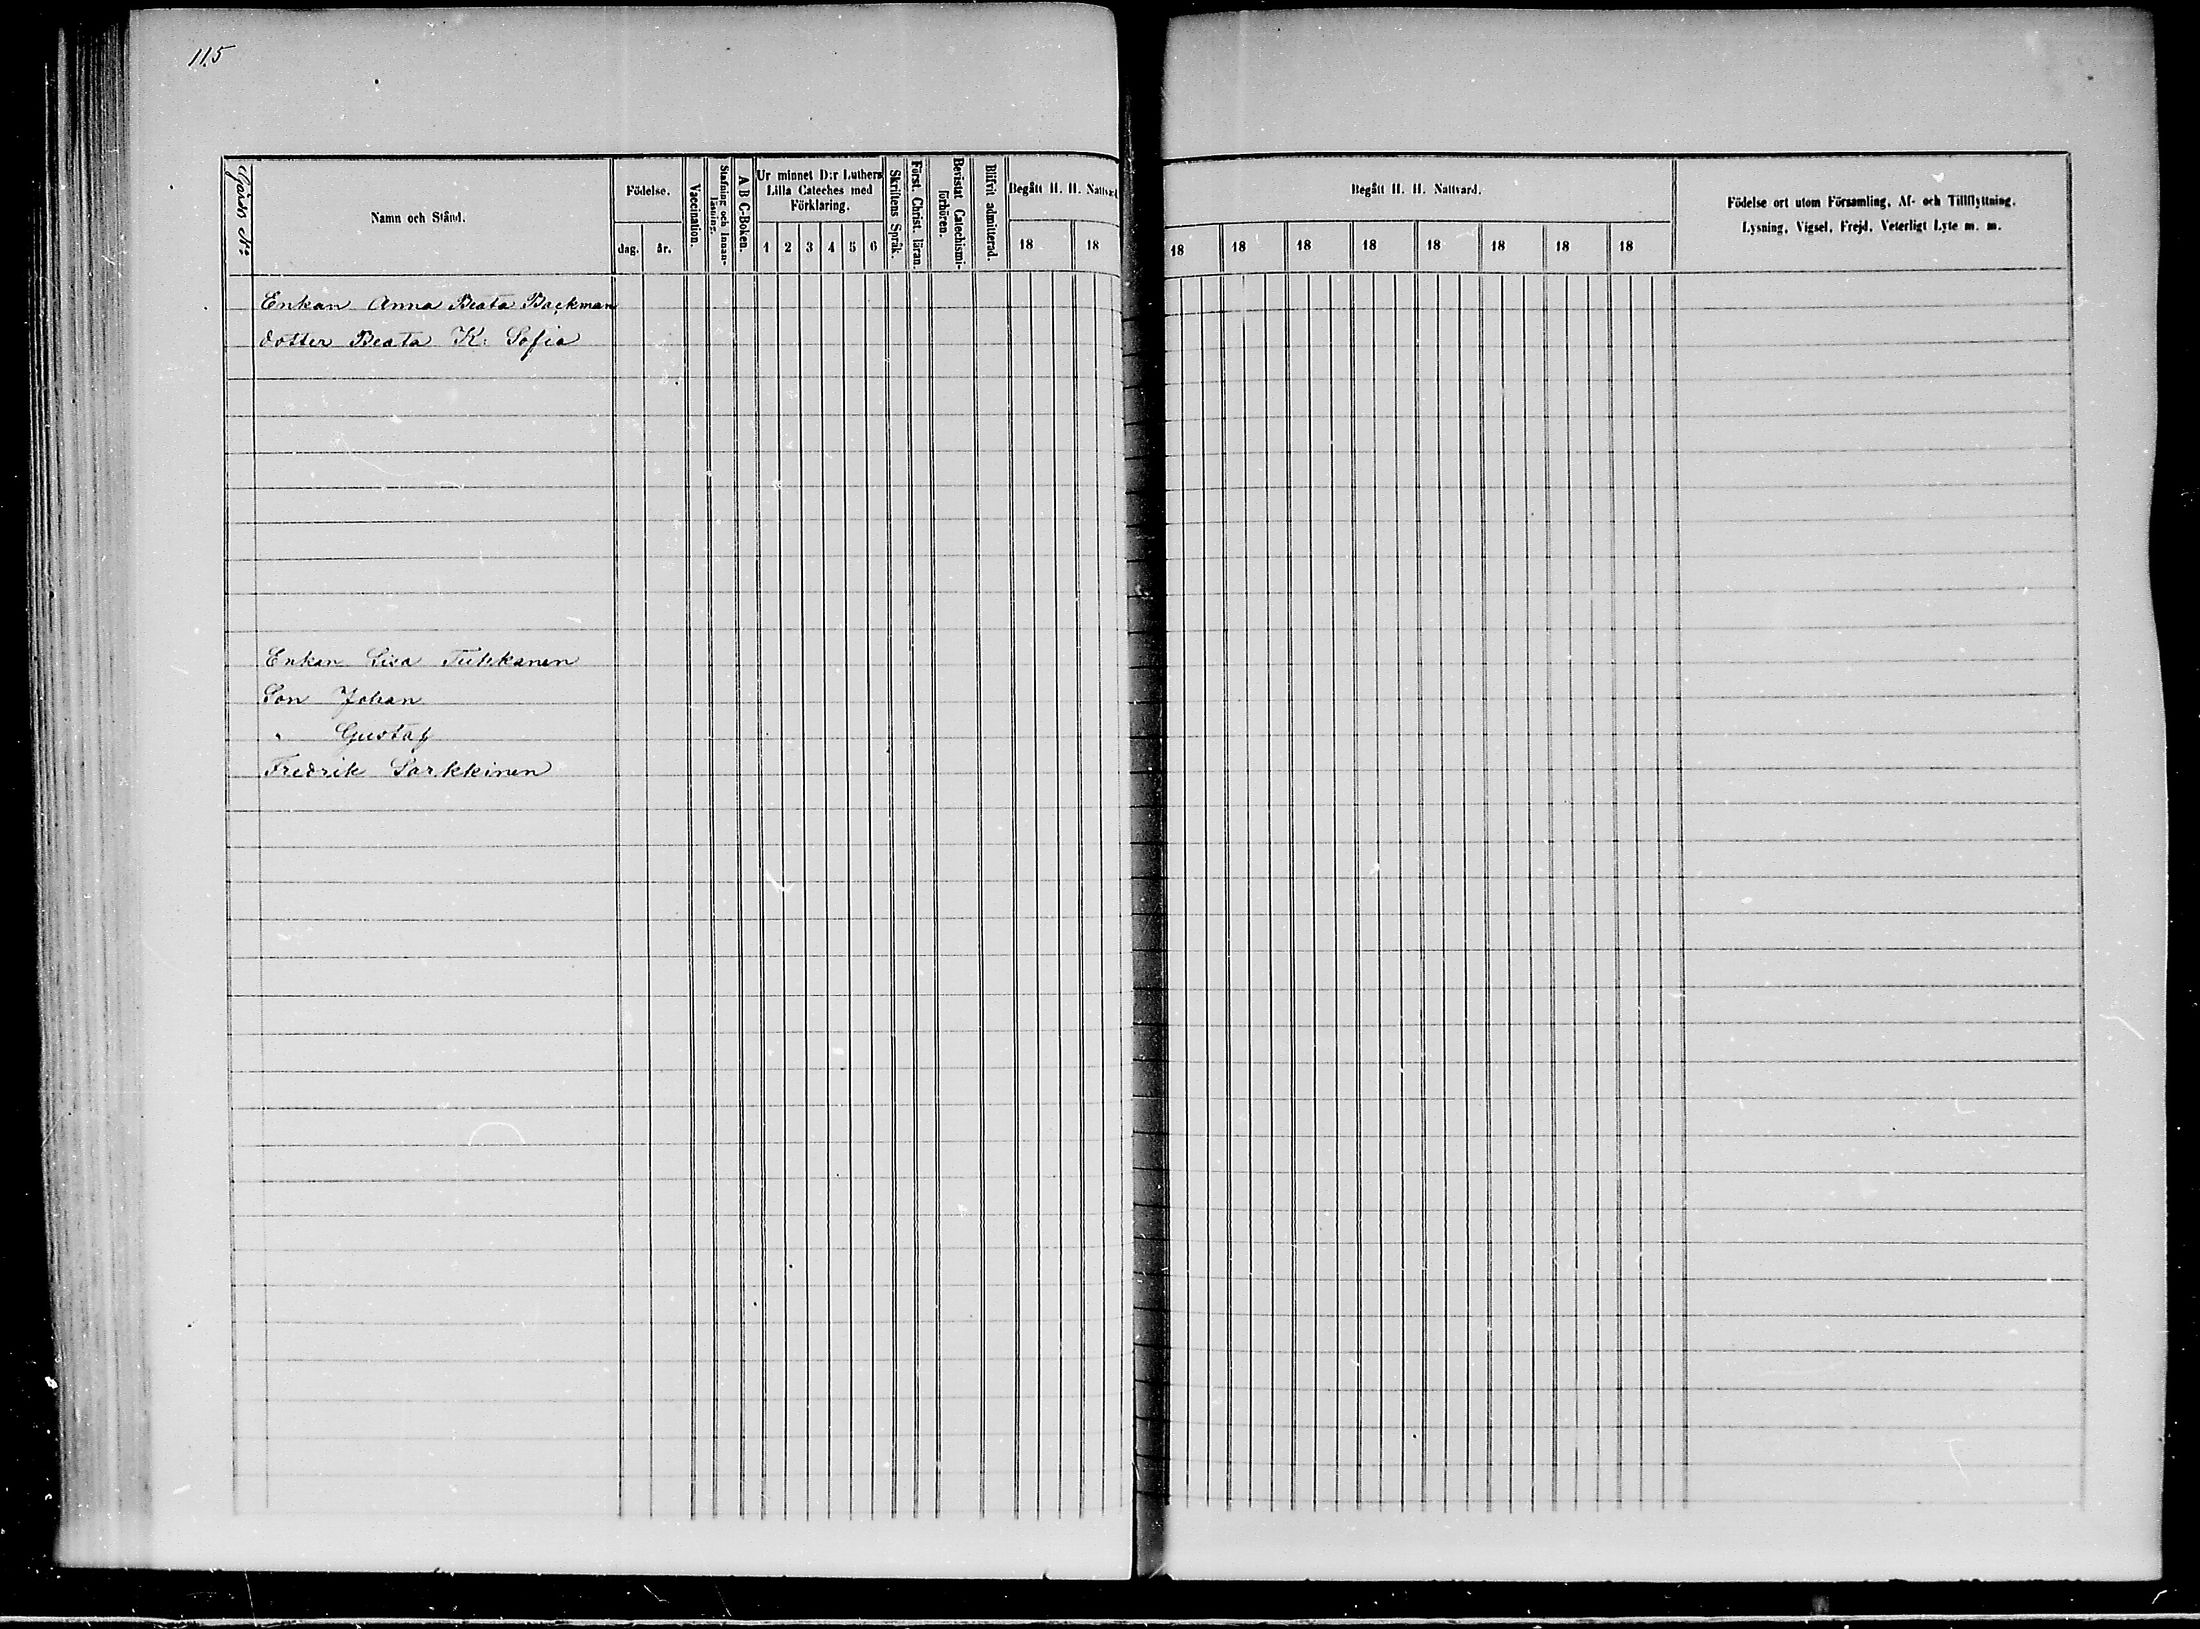 115
Gårds N:o
Namn och Stånd.
Födelse.
dag.
år.
Vaccination.
Stafning och Innan-
läsning.
A B C-Boken.
Ur minnet D:r Luthers
Lilla Cateches med
Förklaring.
1 2 3 4 5 6
Skriftens Språk.
Först. Christ. läran.
Bevistat Catechismi-
förhören.
Blifvit admitterad.
Begått H. H. Nattvard
18 18
Begått H. H. Nattvard.
18 18 18 18 18 18 18 18
Födelse ort utom Församling, Af- och Tillflyttning,
Lysning, Vigsel, Frejd, Veterligt Lyte m. m.
Enkan Anna Beata Backman
dotter Beata K: Sofia
Enkan Lisa Tukkanen
Son Johan
" Gustaf
Fredrik Sarkkinen